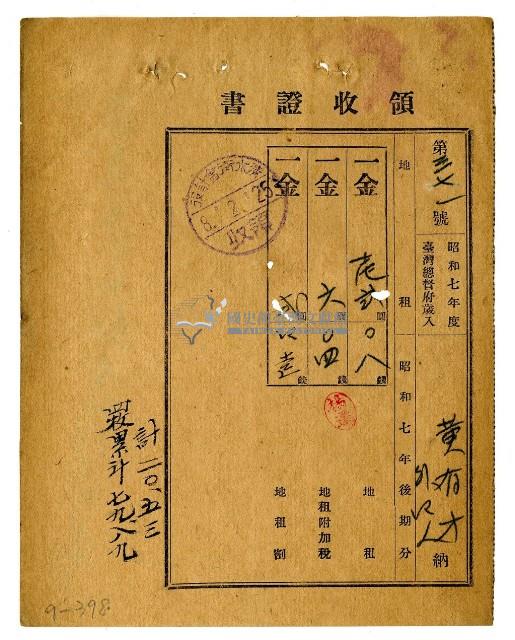 領收證書
第三七一號
昭和七年度
臺灣總督府歲入
黃有才
納
地租
昭和七年後期分
一金
圓
〇八
錢
地租
一金
六
圓
〇四
錢
地租附加稅
一金
圓
壹
錢
地租割
8.2.25
領收
計二〇.五三
累計七九.八九
國史館臺灣文獻館
9-398